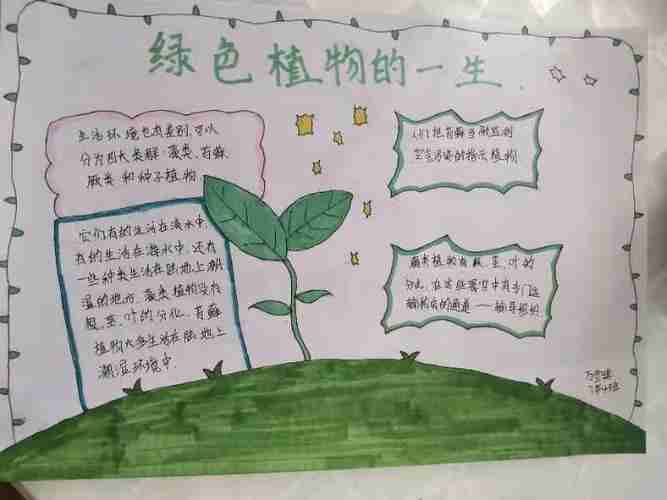 绿色植物的一生
生活环境也有差别,可以
分为四大类群:藻类、苔藓、
蕨类和种子植物
它们有的生活在淡水中,
有的生活在海水中,还有
一些种类生活在陆地上潮
湿的地方。藻类植物没有
根、茎、叶的分化。苔藓
植物大多生活在陆地上
潮湿环境中
人们把苔藓当做监测
空气污染的指示植物
蕨类植物有根、茎、叶的
分化,在这些器官中有专门运
输物质的通道——输导组织